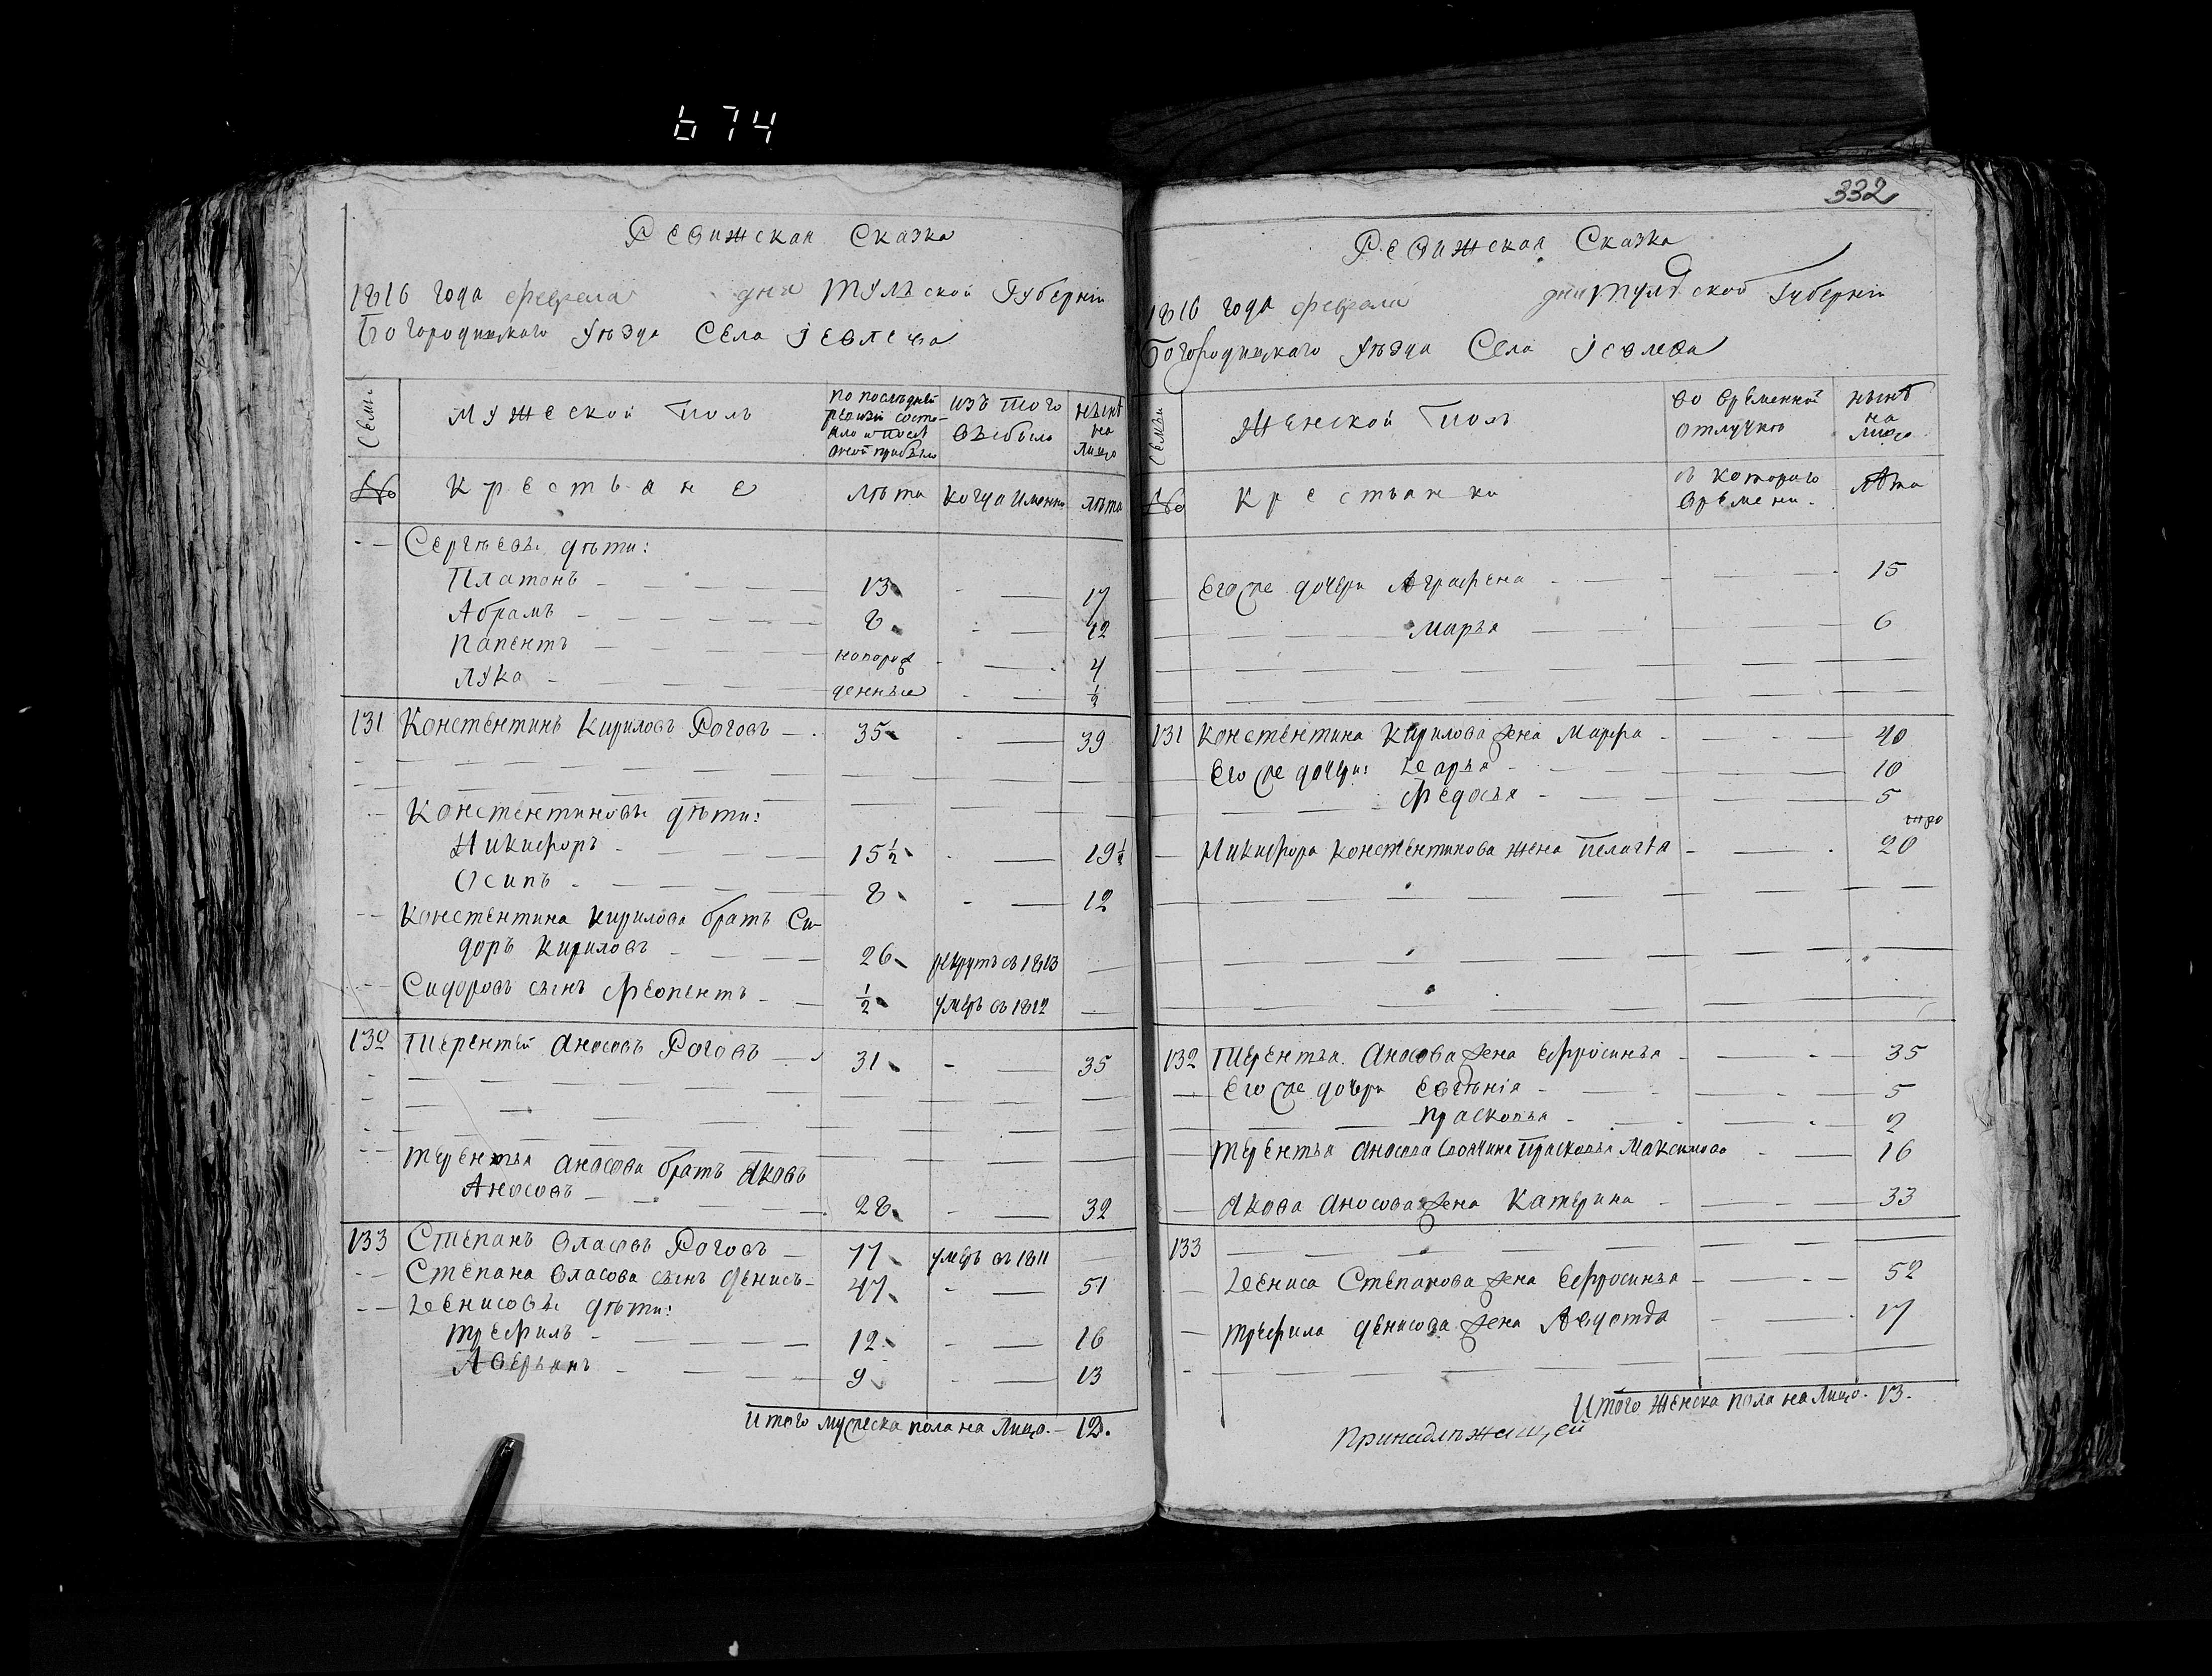 674
Ревижская Сказка
1816 года февраля дня Тульской Губерніи
Богородицкаго Уѣзда Села Іевлева
Семьи
Мужеской Полъ
по последней
ревизіи состо-
яло и после
оной прибыло
изъ того
выбыло
нынѣ
на
лицо
№
Крестьяне
лѣта
когда имянно
лѣта
Сергѣевы дѣти:
Платонъ 13 17
Абрамъ 8 12
Папентъ новорож 4
Лука денные 1/2
131 Констентинъ Кириловъ Роговъ 35 39
Констентиновы дѣти:
Никифоръ 15 1/2 19 1/2
Осипъ 8 12
Констентина Кирилова братъ Си-
доръ Кириловъ 26 рекрутъ въ 1813
Сидоровъ сынъ Феопентъ 1/2 умеръ въ 1812
132 Терентей Аносовъ Роговъ 31 35
Терентья Аносова братъ Яковъ
Аносовъ 28 32
133 Степанъ Власовъ Роговъ 77 умеръ въ 1811
Степана Власова сынъ Денисъ 47 51
Денисовы дѣти:
Трефилъ 12 16
Аверьянъ 9 13
Итого мужеска пола на лицо 12.
332
Ревижская Сказка
1816 года февраля дня Тульской Губерніи
Богородицкаго Уѣзда Села Іевлева
Семьи
Женской Полъ
во временной
отлучке
нынѣ
на
лицо
№
Крестьянки
съ котораго
времени
лѣта
Егоже дочери Аграфена 15
Марья 6
131 Констентина Кирилова жена Марфа 40
Егоже дочери: Дарья 10
Федосья 5
Никифора Констентинова жена Пелагѣя 20
132 Терентья Аносова жена Ефросинья 35
Егоже дочери Евгѣнія 5
Прасковья 2
Терентья Аносова своячина Прасковья Максимова 16
Якова Аносова жена Катерина 33
133
Дениса Степанова жена Ефросинья 52
Трефила Денисова жена Авдотья 17
Итого женска пола на лицо 13.
Принадлѣжащей